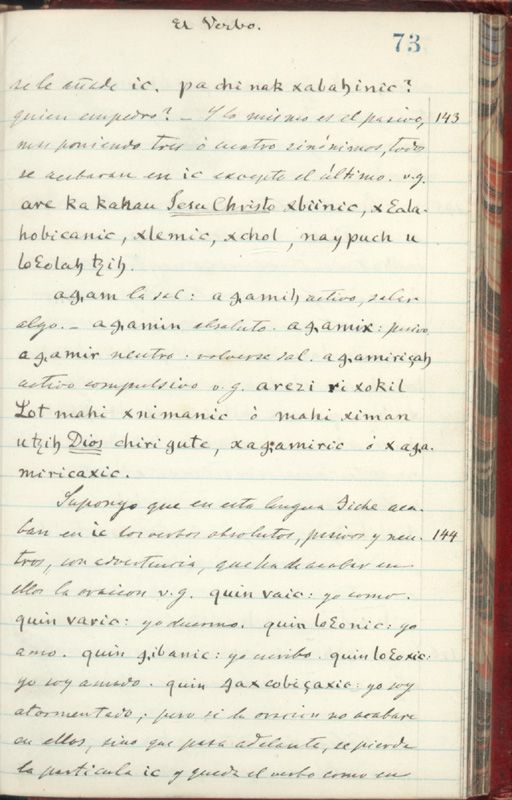 El Verbo.
73
se le añade ic. pachinak xabahinic?
quien empedro? — Y lo mismo es el pasivo, 143
mas poniendo tres ó cuatro sinónimos, todos
se acabaran en ic excepto el último. v.g.
are ka kahau Jesu Christo xbiinic, xɛala-
hobicanic, xlemic, xchol, naypuch u
loɛolah tzih.
agam la sal: agamih activo, salar
algo. — agamin absoluto. agamix: pasivo,
agamir neutro: volverse sal. agamiriçah
activo compulsivo v.g. arezi ri xokil
Lot mahi xnimanic ò mahi ximan
utzih Dios chirigute, xagamiric ó xaga-
miricaxic.
Supongo que en esta lengua aca-
ban en ic los verbos absolutos, pasivos y neu- 144
tros, con advertencia, que ha de acabar en
ellos la oracion v.g. quin vaic: yo como.
quin varic: yo duermo. quin loɛonic: yo
amo. quin gibanic: yo escribo. quin loɛoxic:
yo soy amado. quin gaxcobiçaxic: yo soy
atormentado; pero si la oracion no acabare
en ellos, sino que pasa adelante, se pierde
la particula ic y queda el verbo como en